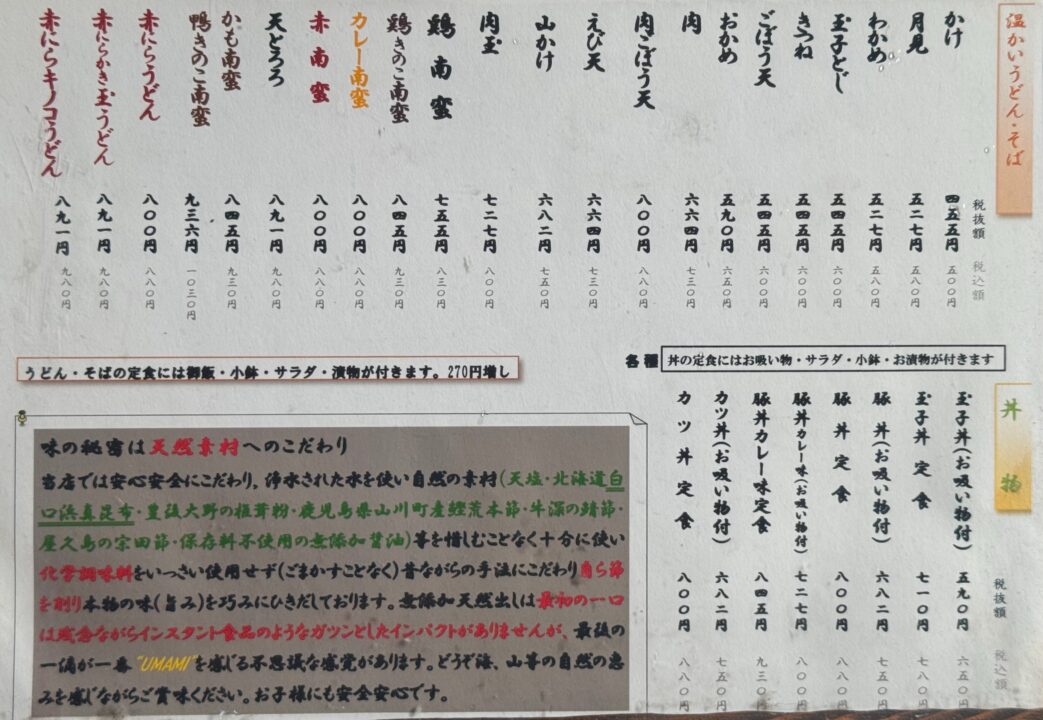 温かいうどん・そば
税抜額 税込額
かけ 四五五円 五〇〇円
月見 五二七円 五八〇円
わかめ 五二七円 五八〇円
玉子とじ 五四五円 六〇〇円
きつね 五四五円 六〇〇円
ごぼう天 五四五円 六〇〇円
おかめ 五九〇円 六五〇円
肉 六六四円 七三〇円
肉ごぼう天 八〇〇円 八八〇円
えび天 六六四円 七三〇円
山かけ 六八二円 七五〇円
肉玉 七二七円 八〇〇円
鶏南蛮 七五五円 八三〇円
鶏きのこ南蛮 八四五円 九三〇円
カレー南蛮 八〇〇円 八八〇円
赤南蛮 八〇〇円 八八〇円
天とろろ 八九一円 九八〇円
かも南蛮 八四五円 九三〇円
鴨きのこ南蛮 九三六円 一〇三〇円
赤にらうどん 八〇〇円 八八〇円
赤にらかき玉うどん 八九一円 九八〇円
赤にらキノコうどん 八九一円 九八〇円
うどん・そばの定食には御飯・小鉢・サラダ・漬物が付きます。270円増し
各種 丼の定食にはお吸い物・サラダ・小鉢・お漬物が付きます
丼物
税抜額 税込額
玉子丼(お吸い物付) 五九〇円 六五〇円
玉子丼定食 七一〇円 七八〇円
豚丼(お吸い物付) 六八二円 七五〇円
豚丼定食 八〇〇円 八八〇円
豚丼カレー味(お吸い物付) 七二七円 八〇〇円
豚丼カレー味定食 八四五円 九三〇円
カツ丼(お吸い物付) 六八二円 七五〇円
カツ丼定食 八〇〇円 八八〇円
味の秘密は天然素材へのこだわり
当店では安心安全にこだわり，浄水された水を使い自然の素材(天塩・北海道白
口浜真昆布・豊後大野の椎茸粉・鹿児島県山川町産鰹荒本節・牛深の鯖節・
屋久島の宗田節・保存料不使用の無添加醤油)等を惜しむことなく十分に使い
化学調味料をいっさい使用せず(ごまかすことなく)昔ながらの手法にこだわり自ら節
を削り本物の味(旨み)を巧みにひきだしております。無添加天然出しは最初の一口
は残念ながらインスタント食品のようなガツンとしたインパクトがありませんが、最後の
一滴が一番“UMAMI”を感じる不思議な感覚があります。どうぞ海、山等の自然の恵
みを感じながらご賞味ください。お子様にも安全安心です。